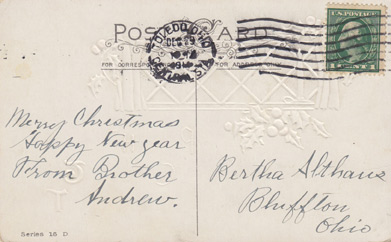 POST CARD
TOLEDO, OHIO
DEC 23
CENTRAL STA.
U.S. POSTAGE
FOR CORRESPONDENCE
FOR ADDRESS ONLY
Merry Christmas
Happy New year
From Brother
Andrew.
Bertha Althaus
Bluffton
Ohio
Series 15 D